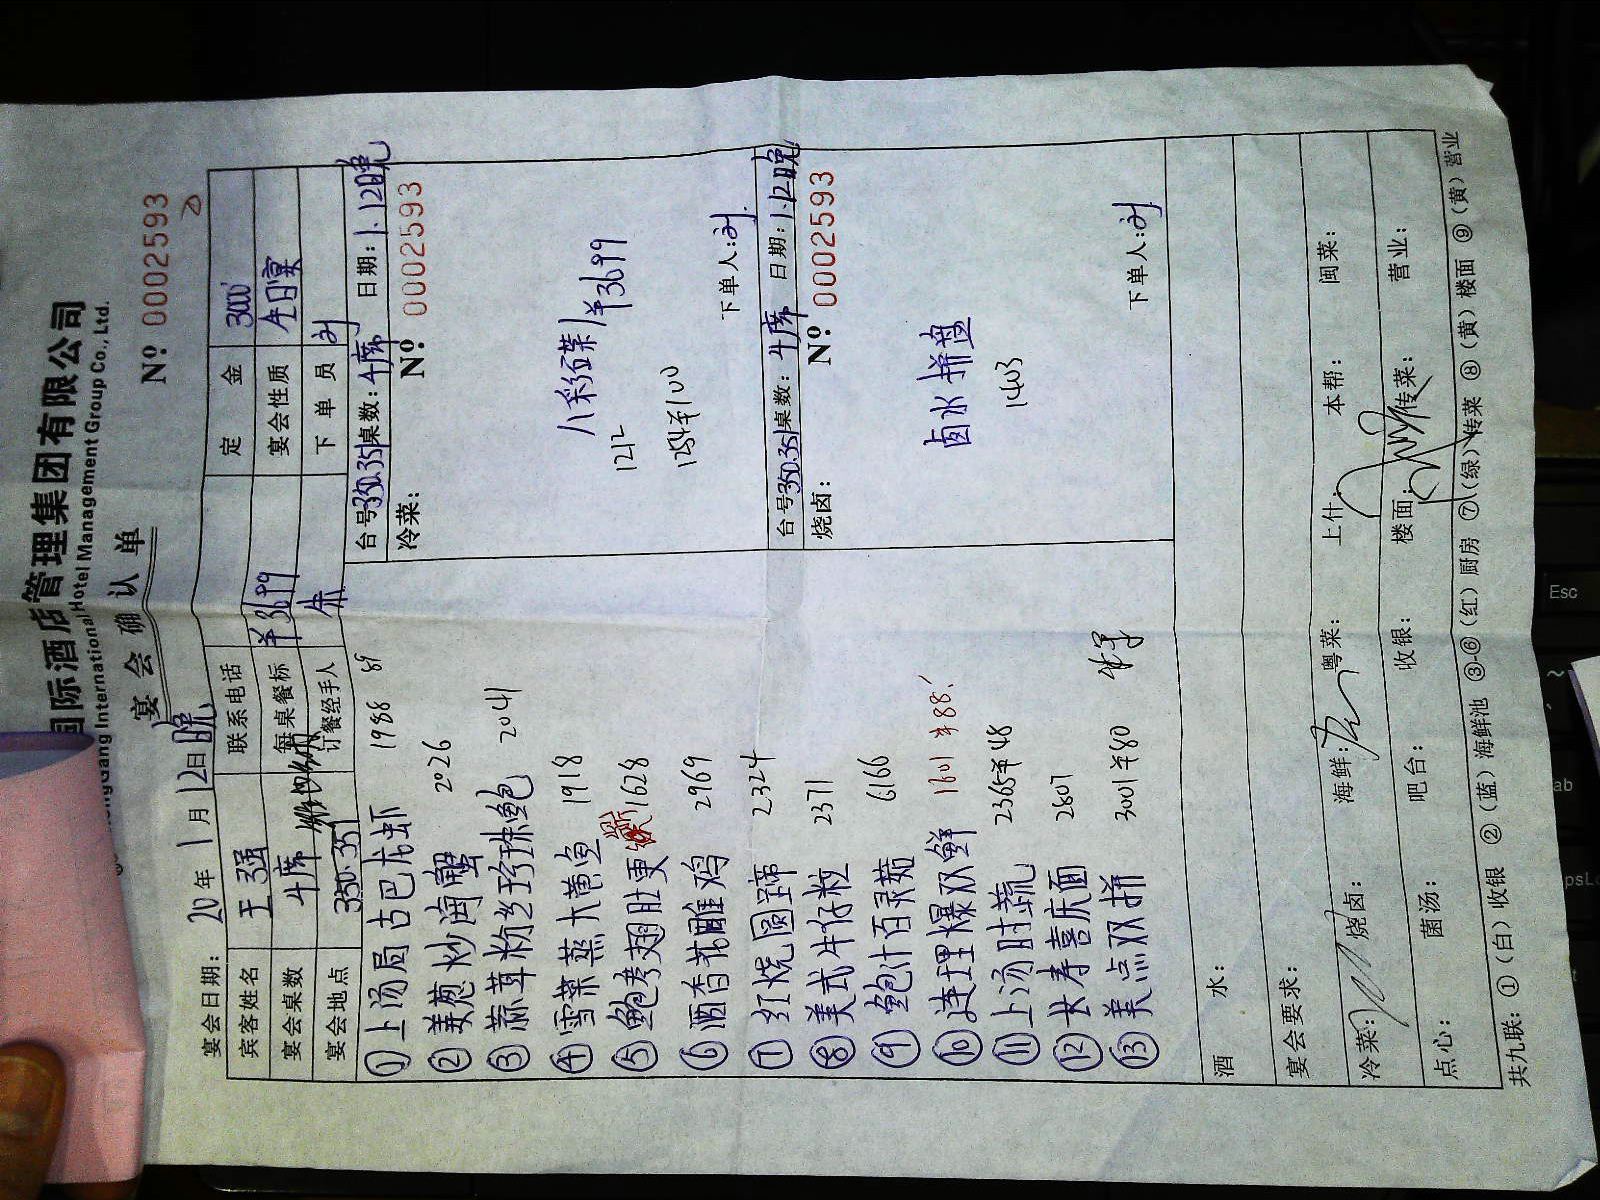 国际酒店管理集团有限公司
Gang International Hotel Management Group Co., Ltd.
宴会确认单
№ 0002593
宴会日期: 20 年 1 月 12 日晚
宾客姓名 王强 联系电话 定金 3000
宴会桌数 4席 每桌餐标 ¥3699 宴会性质 生日宴
宴会地点 350.351 订餐经手人 朱 下单员 刘
① 上汤局古巴龙虾 1988
② 姜葱炒海蟹 2026
③ 蒜茸粉丝珍珠鲍 2041
④ 雪菜蒸大黄鱼 1918
⑤ 鲍参翅肚更 1628
⑥ 酒香花雕鸡 2969
⑦ 红烧圆蹄 2324
⑧ 美式牛仔粒 2371
⑨ 鲍汁百灵菇 6166
⑩ 连理爆双鲜 1601 ¥88
⑪ 上汤时蔬 2365 ¥48
⑫ 长寿喜庆面 2807
⑬ 美点双拼 3001 ¥80
台号 350.351 桌数: 4席 日期: 1.12晚
冷菜: № 0002593
八彩碟 ¥3699
1212
1254 ¥100
下单人: 刘
台号 350.351 桌数: 4席 日期: 1.12晚
烧卤: № 0002593
卤水拼盘
1403
下单人: 刘
酒水:
宴会要求:
冷菜: 烧卤: 海鲜: 粤菜: 上什: 本帮: 闽菜:
点心: 菌汤: 吧台: 收银: 楼面: 传菜: 营业:
共九联: ①(白)收银 ②(蓝)海鲜池 ③-⑥(红)厨房 ⑦(绿)传菜 ⑧(黄)楼面 ⑨(黄)营业
Esc